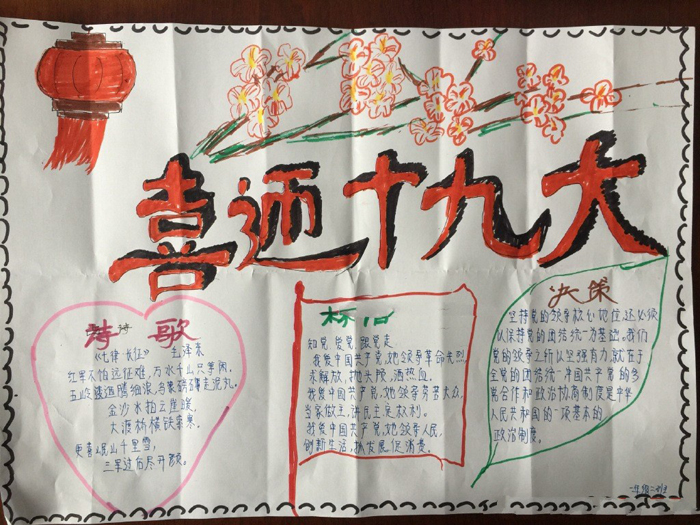 喜迎十九大
诗歌
《七律 长征》 毛泽东
红军不怕远征难,万水千山只等闲,
五岭逶迤腾细浪,乌蒙磅礴走泥丸,
金沙水拍云崖暖,
大渡桥横铁索寒,
更喜岷山千里雪,
三军过后尽开颜。
知党 爱党 跟党走
我爱中国共产党,她领导革命先烈
求解放,抛头颅,洒热血,
我爱中国共产党,她领导劳苦大众,
当家做主,讲民主,享权利。
我爱中国共产党,她领导人民,
创新生活,抓发展,促消费。
决策
坚持党的领导核心地位,还必须
以保持党的团结统一为基础。我们
党的领导之所以坚强有力,就在于
全党的团结统一中国共产党的多
党合作和政治协商制度是中华
人民共和国的一项基本的
政治制度。